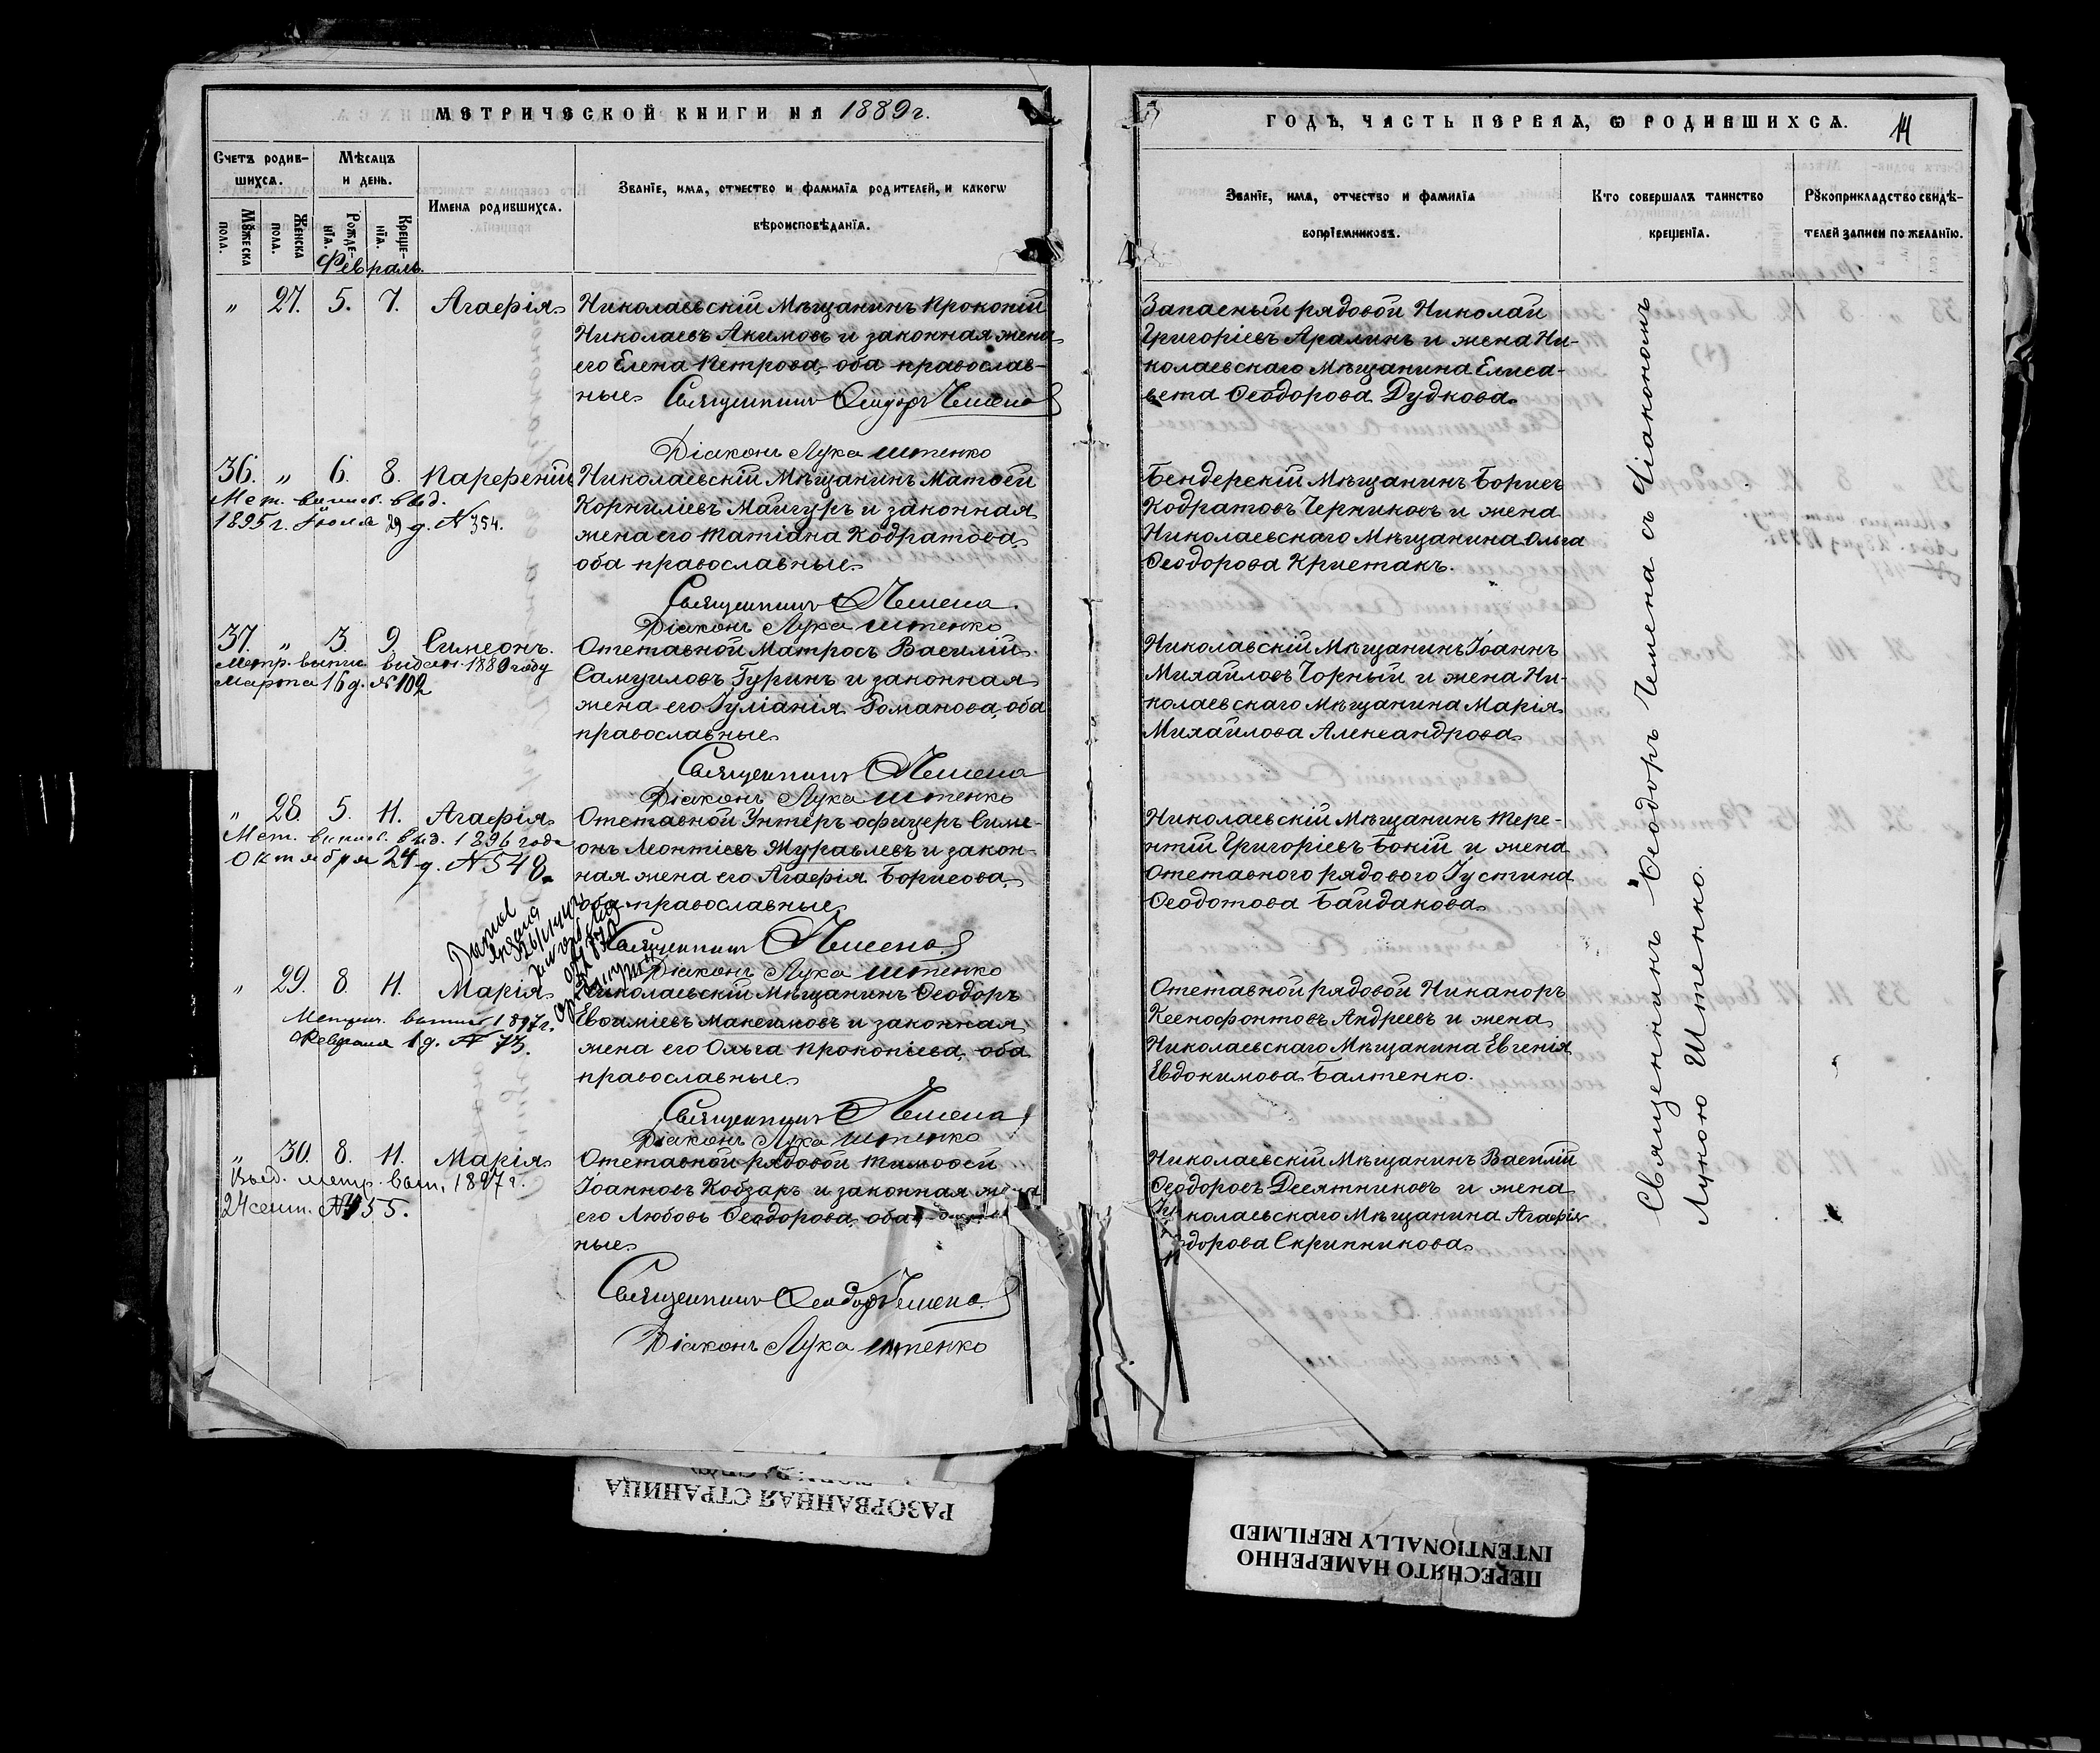 МЕТРИЧЕСКОЙ КНИГИ НА 1889 г.
Счетъ родив-
шихсѧ.
Мѣсѧцъ
и день.
Имена родившихсѧ.
Званїе, имѧ, отчество и фамилїѧ родителей, и какогѡ
вѣроисповѣданїѧ.
Мꙋжеска
пола.
Женска
пола.
Рожде-
нїѧ.
Креще-
нїѧ.
Февраль.
" 27. 5. 7. Агафія
Николаевскій Мѣщанинъ Прокопій
Николаевъ Акимовъ и законная жена
его Елена Петрова, оба православ-
ные Священникъ Ѳеодоръ Чемена
Діаконъ Лука Штенко
36. " 6. 8. Парѳеній
Мет. выпис. выд.
1895 г. Іюля 29 д. № 354.
Николаевскій Мѣщанинъ Матѳей
Корниліевъ Майгуръ и законная
жена его Татіана Кодратова,
оба православные
Священникъ Ѳ Чемена
Діаконъ Лука Штенко
37. " 3. 9. Симеонъ.
Метр. выпис выдан. 1889 году
Марта 16 д. № 102
Отставной Матросъ Василій
Самуиловъ Гуринъ и законная
жена его Іуліанія Романова, оба
православные
Священникъ Ѳ Чемена
Діаконъ Лука Штенко
" 28. 5. 11. Агафія
Мет. выпис. выд. 1896 года
Октября 24 д. № 548.
Отставной Унтеръ-офицеръ Симе-
онъ Леонтіевъ Муравлевъ и закон-
ная жена его Агафія Борисова,
оба православные
Священникъ Ѳ Чемена
Діаконъ Лука Штенко
" 29. 8. 11. Марія
выпис 1897 г.
Февраля 1 д. № 73.
Николаевскій Мѣщанинъ Ѳеодоръ
Евѳиміевъ Максимовъ и законная
жена его Ольга Прокопіева, оба
православные
Священникъ Ѳ Чемена
Діаконъ Лука Штенко
" 30. 8. 11. Марія
Выд. метр. вып. 1897 г.
24 сент. № 455.
Отставной рядовой Тимоѳей
Іоанновъ Кобзарь и законная жена
его Любовь Ѳеодорова, оба
ные
Священникъ Ѳеодоръ Чемена
Діаконъ Лука Штенко
ГОДЪ, ЧАСТЬ ПЕРВАѦ, Ѡ РОДИВШИХСѦ. 14
Званїе, имѧ, отчество и фамилїѧ
воспрїемниковъ.
Кто совершалъ таинство
крещенїѧ.
Рꙋкоприкладство свидѣ-
телей записи по желанїю.
Запасный рядовой Николай
Григоріевъ Аралинъ и жена Ни-
колаевскаго Мѣщанина Елиса-
вета Ѳеодорова Дудкова
Бендерскій Мѣщанинъ Борисъ
Кодратовъ Черниковъ и жена
Николаевскаго Мѣщанина Ольга
Ѳеодорова Кристакъ.
Николаевскій Мѣщанинъ Іоаннъ
Михайловъ Чорный и жена Ни-
колаевскаго Мѣщанина Марія
Михайлова Александрова
Николаевскій Мѣщанинъ Тере-
нтій Григоріевъ Бокій и жена
Отставного рядового Іустина
Ѳеодотова Байдакова
Отставной рядовой Никаноръ
Ксенофонтовъ Андреевъ и жена
Николаевскаго Мѣщанина Евгенія
Евдокимова Балтенко.
Николаевскій Мѣщанинъ Василій
Ѳеодоровъ Десятниковъ и жена
Николаевскаго Мѣщанина Агафія
дорова Скрипникова
Священникъ Ѳеодоръ Чемена съ Діакономъ
Лукою Штенко.
РАЗОРВАННАЯ СТРАНИЦА
ПЕРЕСНЯТО НАМЕРЕННО
INTENTIONALLY REFILMED